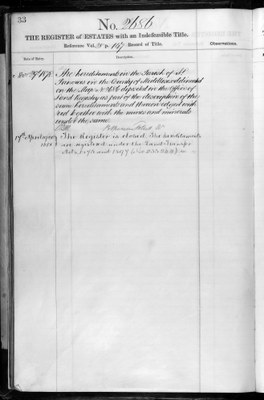 33
No. 2686
THE REGISTER of ESTATES with an Indefeasible Title.
Reference Vol. p. 107 Record of Title.
Observations.
Date of Entry.
Description.
The hereditaments in the Parish of St
Pancras in the County of Middlesex delineated
on the Map No 2686 deposited in the Office of
Land Registry as part of the description of the
same hereditaments and thereon edged with
red together with the mines and minerals
under the same.
17th April
The Register is closed. The hereditaments
are registered under the Land Transfer
Acts 1875 and 1897